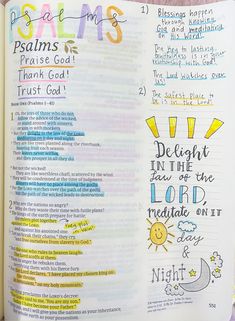 PSALMS
Psalms
Praise God!
Thank God!
Trust God!
Book One (Psalms 1-41)
1 Oh, the joys of those who do not
follow the advice of the wicked,
or stand around with sinners,
or join in with mockers.
But they delight in the law of the LORD,
meditating on it day and night.
They are like trees planted along the riverbank,
bearing fruit each season.
Their leaves never wither,
and they prosper in all they do.
But not the wicked!
They are like worthless chaff, scattered by the wind.
They will be condemned at the time of judgment.
Sinners will have no place among the godly.
For the LORD watches over the path of the godly,
but the path of the wicked leads to destruction.
2 Why are the nations so angry?
Why do they waste their time with futile plans?
The kings of the earth prepare for battle;
the rulers plot together
against the LORD
and against his anointed one.
"Let us break their chains," they cry,
"and free ourselves from slavery to God."
But the one who rules in heaven laughs.
The Lord scoffs at them.
Then in anger he rebukes them,
terrifying them with his fierce fury.
For the Lord declares, "I have placed my chosen king on
the throne
in Jerusalem, on my holy mountain."
The king proclaims the LORD's decree:
"The LORD said to me, 'You are my son.
Today I have become your Father.
Only ask, and I will give you the nations as your inheritance,
1) Blessings happen
through knowing
God and meditating
on His Word.
The key to lasting
relationship with God.
The Lord watches over
us!
2) The safest place to
be is in the Lord
Delight
IN THE
Law OF THE
LORD,
meditate ON IT
day
&
Night